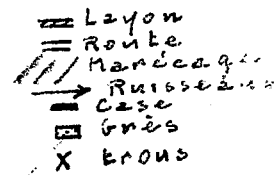 Layon
Route
Marécage
Ruisseau
Case
Grès
trous